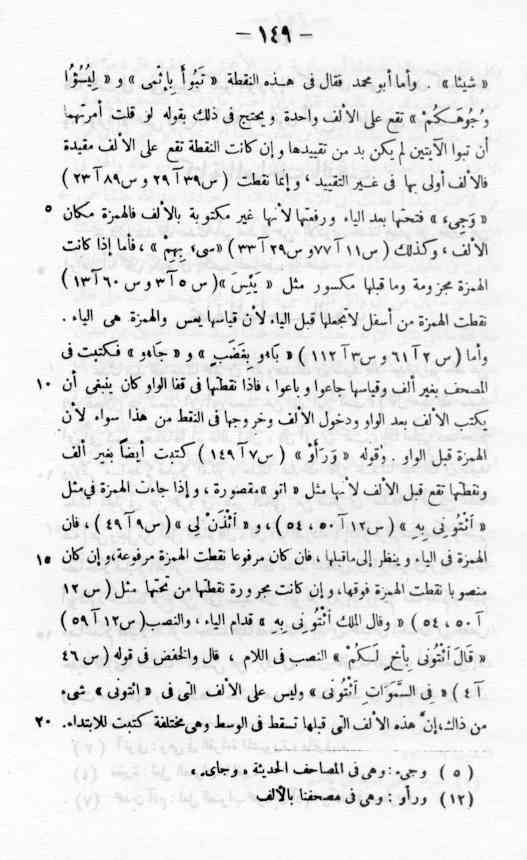 — ١٤٩ —
« شيئا » . وأما أبو محمد فقال فى هـذه النقطة « تَبُوأَ بِإثْمِى » و « لِيَسُوُا
وُجُوهَـكُمْ » تقع على الألف واحدة ويحتج فى ذلك بقوله لو قلت أمرتهما
أن تبوا الآيتين لم يكن بد من تقييدها وإن كانت النقطة تقع على الألف مقيدة
فالألف أولى بها فى غـير التقييد ، وإنما نقطت ( س ٣٩ آ ٦٩ وس ٨٩ آ ٢٣ )
« وَجِىءَ » فتحتها بعد الياء ورفعتها لأنها غير مكتوبة بالألف فالهمزة مكان ٥
الألف ، وكذلك ( س ١١ آ ٧٧ وس ٢٩ آ ٣٣ ) « سىءَ بِهِمْ » ، فأما إذا كانت
الهمزة مجزومة وما قبلها مكسور مثل « يَئِسَ » ( س ٥ آ ٣ وس ٦٠ آ ١٣ )
نقطت الهمزة من أسفل لاتجعلها قبل الياء لأن قياسها يعس والهمزة هى الياء .
وأما ( س ٢ آ ٦١ وس ٣ آ ١١٢ ) « بَاءو بِغَضَبٍ » و « جاءو » فـكتبت فى
المصحف بغير ألف وقياسها جاعوا وباعوا ، فاذا نقطتها فى قفا الواو كان ينبغى أن ١٠
يكتب الألف بعد الواو ودخول الألف وخروجها فى النقط من هذا سواء لأن
الهمزة قبل الواو . وقوله « وَرَأَوْ » ( س ٧ آ ١٤٩ ) كتبت أيضاً بغير ألف
ونقطتها تقع قبل الألف لأنها مثل « اتو » مقصورة ، وإذا جاءت الهمزة فى مثل
« أئْتُونِى بِهِ » ( س ١٢ آ ٥٠ ، ٥٤ ) ، و « أئْذَنْ لى » ( س ٩ آ ٤٩ ) ، فان
الهمزة فى الياء وينظر إلى ماقبلها ، فان كان مرفوعا نقطت الهمزة مرفوعة ، وإن كان ١٥
منصوبا نقطت الهمزة فوقها ، وإن كانت مجرورة نقطتها من تحتها مثل ( س ١٢
آ ٥٠ ، ٥٤ ) « وقال الملك أئْتُونِى بِهِ » قدام الياء ، والنصب ( س ١٢ آ ٥٩ )
« قَالَ أئْتُونى بِأخٍ لَـكُمْ » النصب فى اللام ، قال والخفض فى قوله ( س ٤٦
آ ٤ ) « فِى السَّمَوَاتِ أئْتُونِى » وليس على الألف التى فى « ائتونى » شىء
من ذلك ، إنّ هذه الألف التى قبلها تسقط فى الوسط وهى مختلفة كتبت للابتداء. ٢٠
( ٥ ) وجىء : وهى فى المصاحف الحديثة « وجاىء »
( ١٢ ) ورأو : وهى فى مصحفنا بالألف